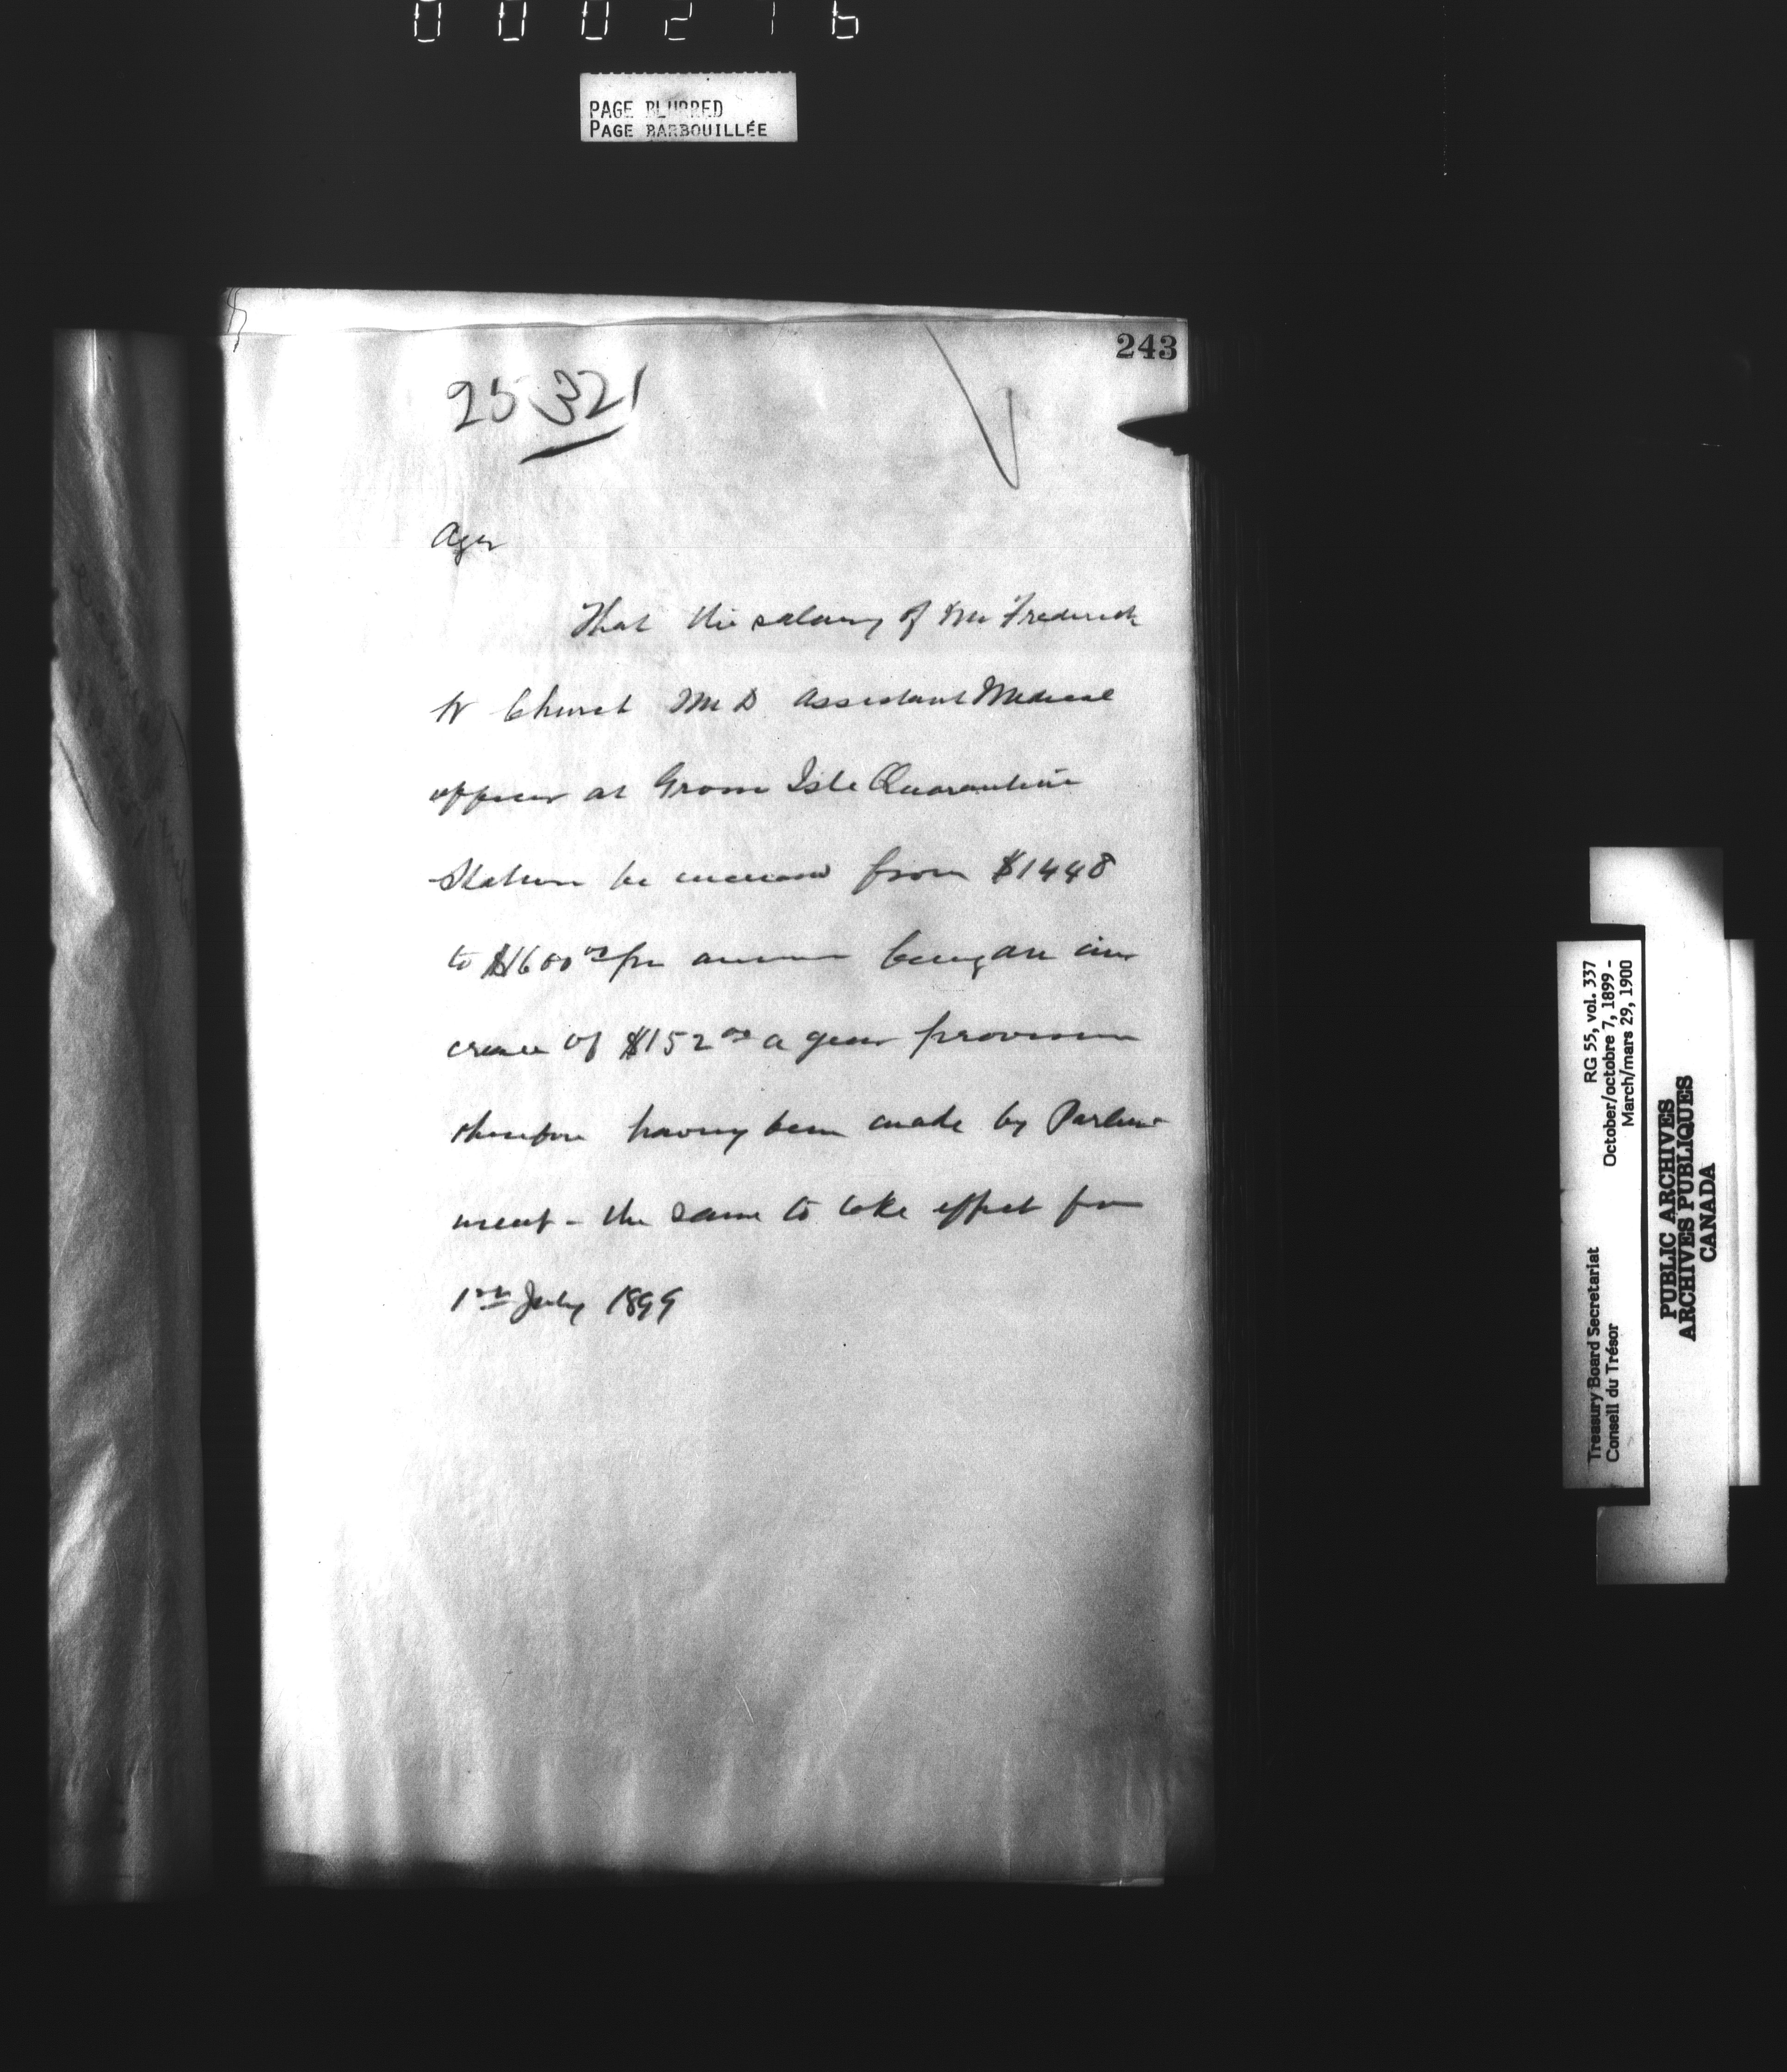 000276
PAGE BLURRED
PAGE BARBOUILLÉE
243
25321
Agr
That the salary of Mr Frederick
W Church M D Assistant Medical
officer at Grosse Isle Quarantine
Station be increased from $1448
to $1600 00 per annum being an in
crease of $152 00 a year provision
therefore having been made by Parlia
ment - the same to take effect from
1st July 1899
Treasury Board Secretariat RG 55, vol. 337
Conseil du Trésor October/octobre 7, 1899 -
March/mars 29, 1900
PUBLIC ARCHIVES
ARCHIVES PUBLIQUES
CANADA